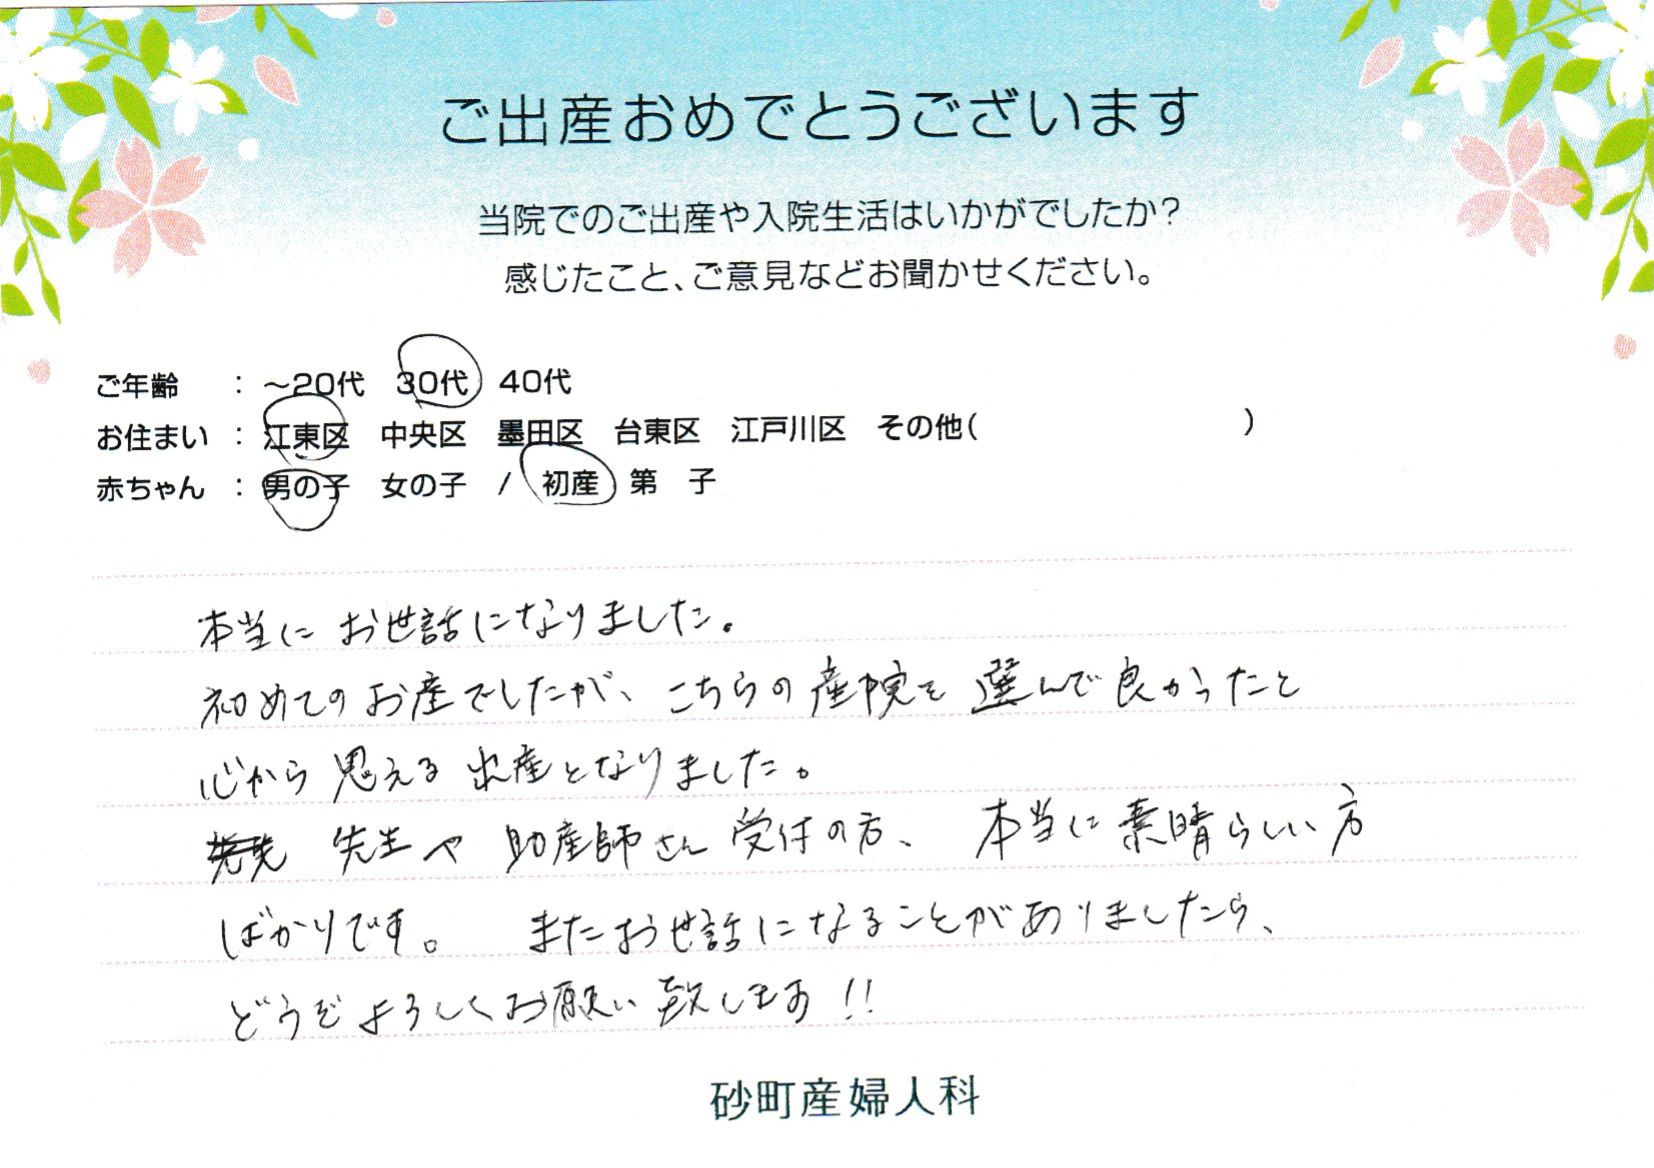 ご出産おめでとうございます
当院でのご出産や入院生活はいかがでしたか?
感じたこと、ご意見などお聞かせください。
ご年齢 : ~20代 30代 40代
お住まい : 江東区 中央区 墨田区 台東区 江戸川区 その他( )
赤ちゃん : 男の子 女の子 / 初産 第 子
本当に お世話になりました。
初めてのお産でしたが、こちらの産院を選んで良かったと
心から思える出産となりました。
先生や助産師さん受付の方、本当に素晴らしい方
ばかりです。またお世話になることがありましたら、
どうぞよろしくお願い致します!!
砂町産婦人科